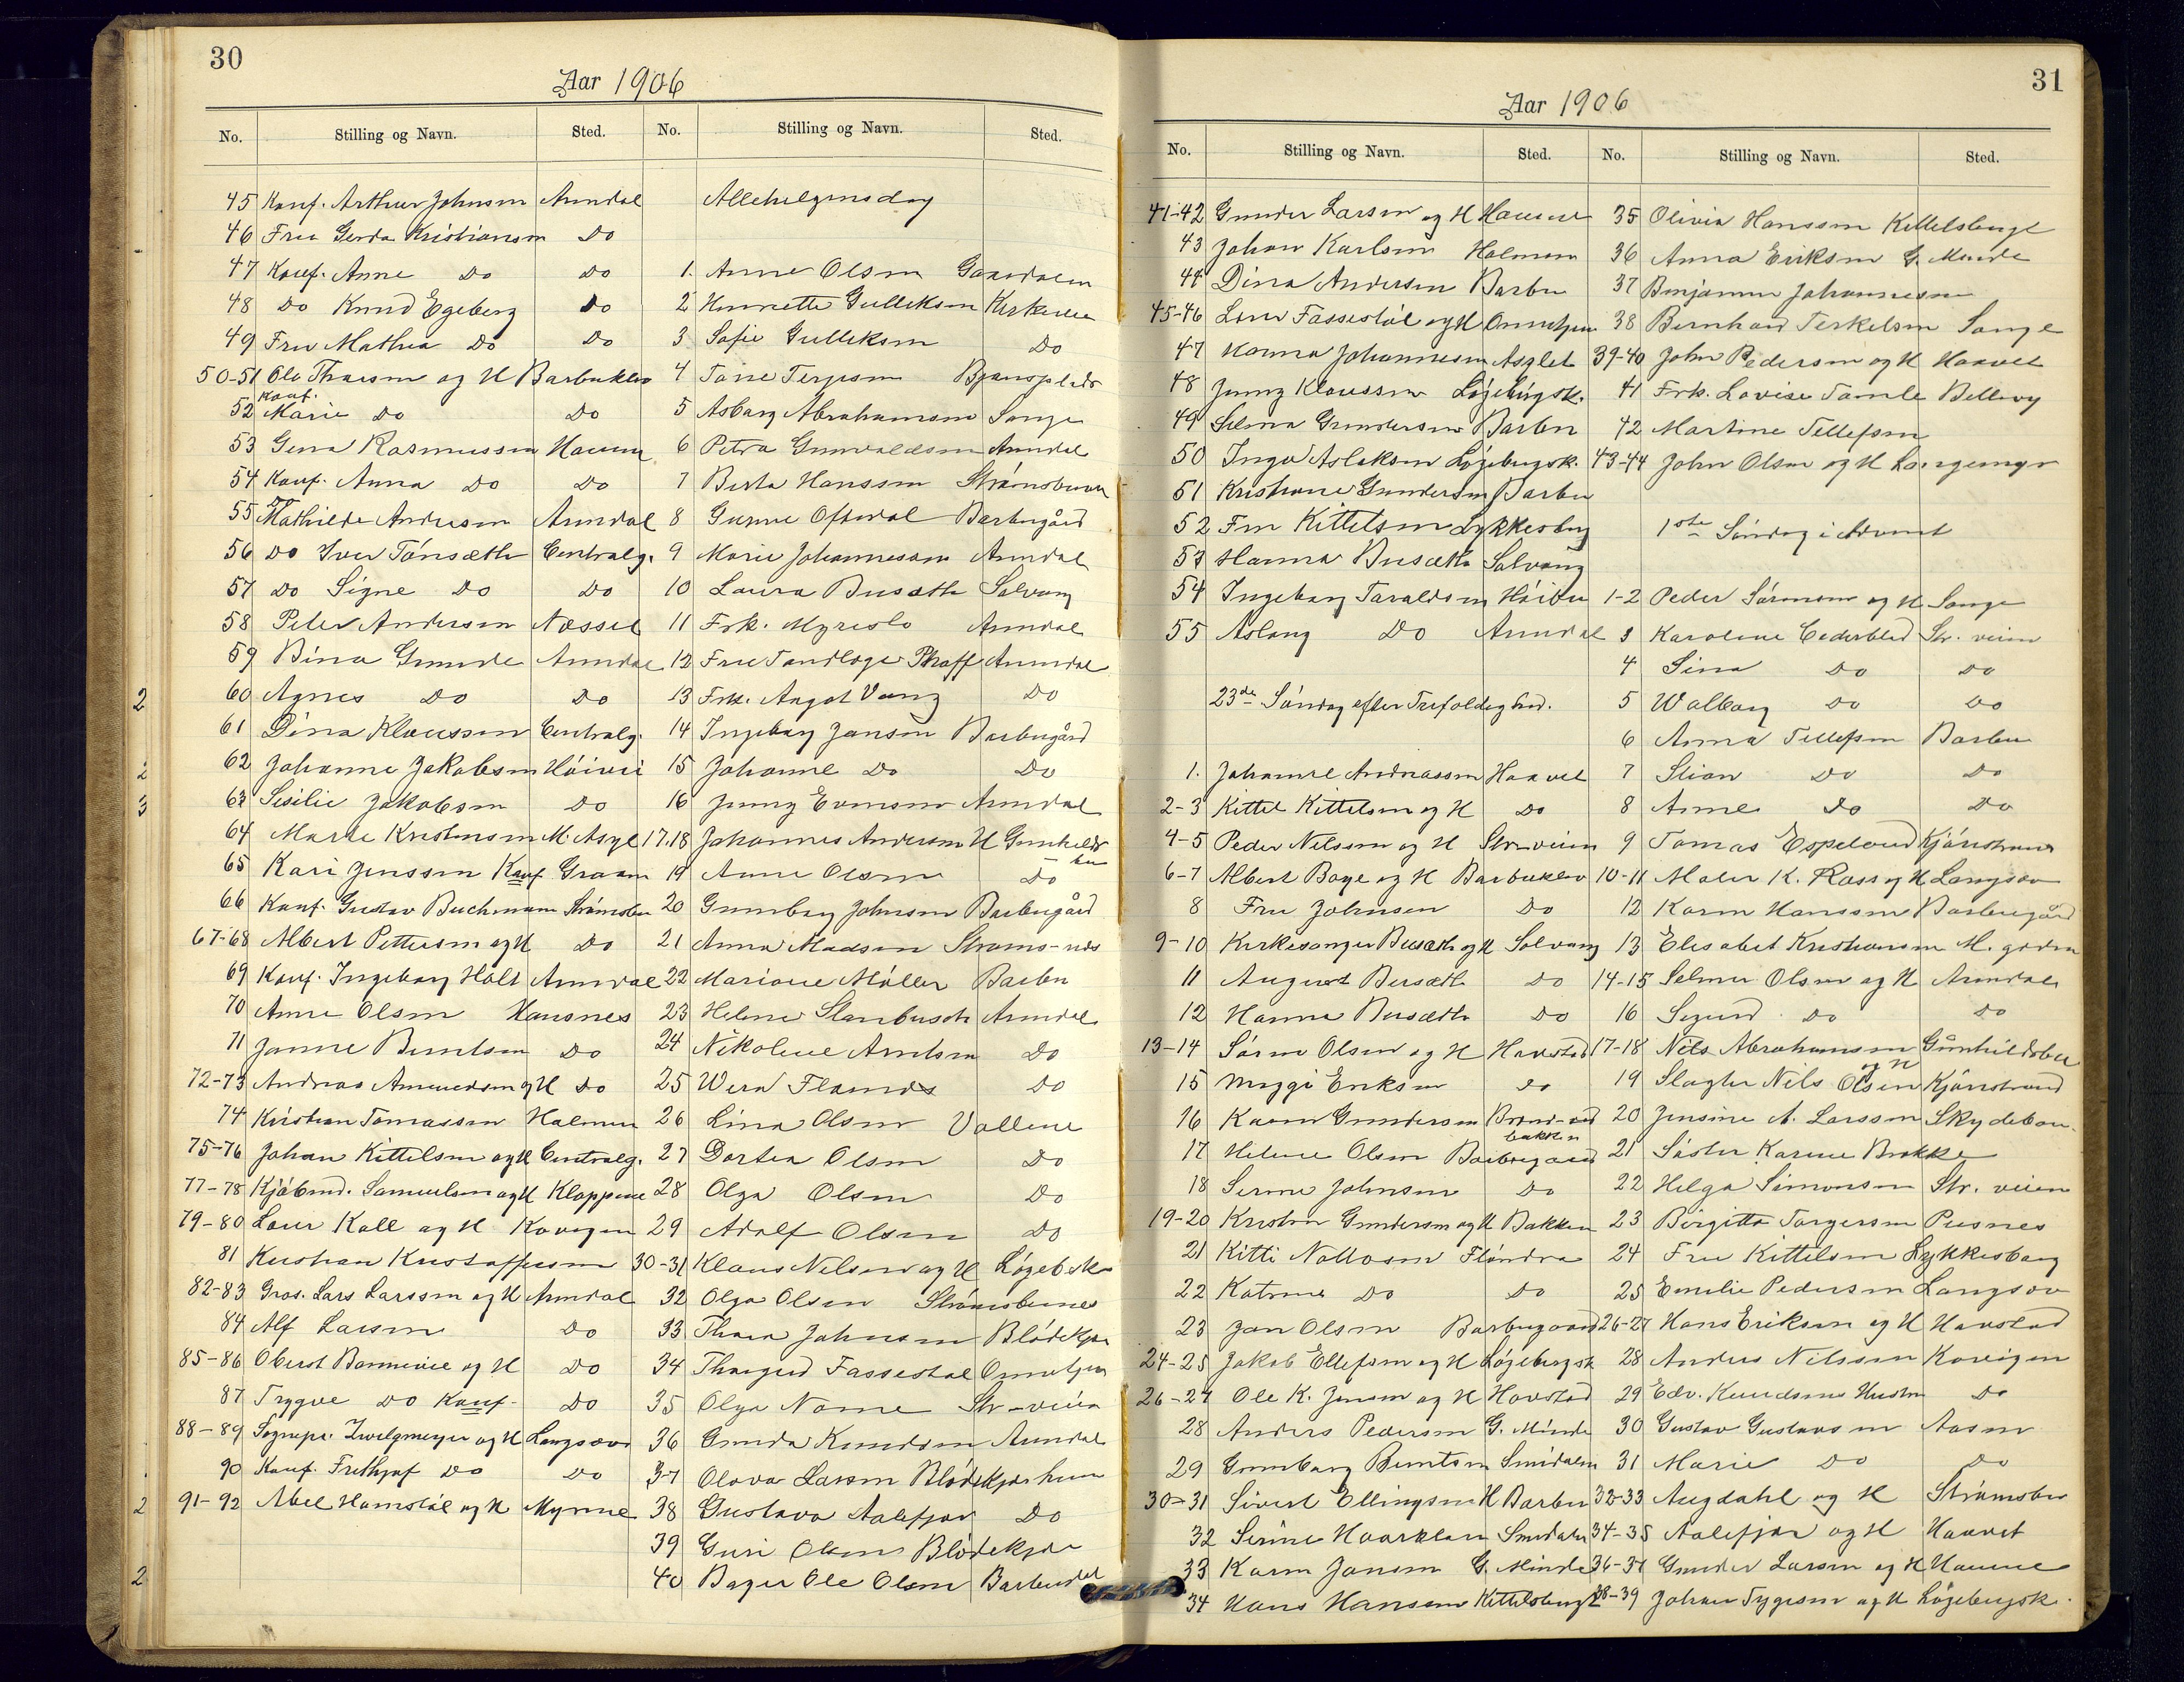 30
Aar 1906
No. Stilling og Navn. Sted. No. Stilling og Navn. Sted.
45 Konf. Arthur Johnsen Arendal
46 Fru Gerda Kristiansen Do
47 Konf. Anne Do Do
48 Do Knud Egeberg Do
49 Fru Mathea Do Do
50-51 Ole Thorsen og H Barbuklev
52 Konf. Marie Do Do
53 Gena Rasmussen Hauen
54 Konf. Anna Do Do
55 Do Mathilde Andersen Arendal
56 Do Iver Tönsæth Centralg.
57 Do Signe Do Do
58 Peter Andersen Næsset
59 Bina Grunde Arendal
2 60 Agnes Do Do
61 Dina Klaussen Centralg.
2 62 Johanne Jakobsen Höivei
3 63 Sesilie Jakobsen Do
64 Marte Kristensen M. Asyl
65 Kari Jenssen Konf Graaen
66 Konf. Gustav Buchmann Strömsbu
67-68 Albert Pettersen og H Do
69 Konf. Ingeborg Holt Arendal
70 Anne Olsen Hausnes
71 Janne Berntsen Do
72-73 Andreas Amundsen og H Do
74 Kristian Tomassen Holmen
75-76 Johan Kittelsen og H Centralg.
77-78 Kjöbmd. Samuelsen og H Kloppene
79-80 Lars Kall og H Kovigen
81 Kristian Kristoffersen
82-83 Gros. Lars Larssen og H Arendal
84 Alf Larsen Do
85-86 Oberst Bonnevie og H Do
87 Trygve Do Konf. Do
88-89 Sognepr. Zwilgmeyer og H Langsæv
90 Konf. Frethjof Do Do
2 91-92 Abel Homstöl og H Myrene
2
Allehelgensdag
1. Anne Olsen Gaardalen
2 Henriette Gulleksen Kirkeveien
3 Sofie Gulleksen Do
4 Tone Terjesen Bjønsplads
5 Asborg Abrahamsen Songe
6 Petra Gunvaldsen Arendal
7 Berta Hanssen Strömsbuen
8 Gunne Oftedal Barbugård
9 Marie Johannessen Arendal
10 Laura Busæth Solvang
11 Frk. Myreslo Arendal
12 Fru Tandlæge Phaff Arendal
13 Frk. Angot Vang Do
14 Ingeborg Jansen Barbugård
15 Johanne Do Do
16 Jenny Evensen Arendal
17.18 Johannes Andersen H Gunhilds-bu
19 Anne Olsen Do
20 Gunborg Johnsen Barbugård
21 Anna Madsen Stroms-nes
22 Mariane Möller Barbu
23 Helene Starbusch Arendal
24 Nikoline Arntsen Do
25 Wera Flames Do
26 Lina Olsen Vollene
27 Dortea Olsen Do
28 Olga Olsen Do
29 Adolf Olsen Do
30-31 Klaus Nelsen og H Lögeb sk
32 Olga Olsen Strömsbunes
33 Thora Johnsen Blödekjær
34 Thorgerd Fassestøl
35 Olga Name Str-veien
36 Gunda Knudsen Arendal
37 Olava Larsen Blödekjærheia
38 Gustava Aalefjær Do
39 Guri Olsen Blödekjær
40 Bager Ole Olsen Barbudal
31
Aar 1906
No. Stilling og Navn. Sted. No. Stilling og Navn. Sted.
41-42 Gunder Larsen og H Hauene
43 Johan Karlsen Holmen
44 Dina Andersen Barbu
45-46 Lars Fassestøl og H
47 Hanna Johannesen Asylet
48 Jenny Klaussen Løgebirgsk.
49 Selma Gundersen Barbu
50 Inga Aslaksen Løgebergsk.
51 Kristiane Gundersen Barbu
52 Fru Kittelsen Lykkesborg
53 Hanna Busæth Solvang
54 Ingeborg Taraldsen Höivei
55 Aslaug Do Arendal
23de Söndag efter Trefoldighed.
1. Johanne Andreassen Haavet
2-3 Kittel Kittelsen og H Do
4-5 Peder Nilssen og H Str-veien
6-7 Albert Boye og H Barbuklev
8 Fru Johnsen Do
9-10 Kirkesanger Busæth og H Solvang
11 August Busæth Do
12 Hanna Busæth Do
13-14 Sören Olsen og H Havstad
15 Maggi Eriksen Do
16 Karen Gundersen Brand-vedbakken
17 Helene Olsen Barbogaard
18 Serine Johnsen Do
19-20 Kristen Gundersen og H Bakken
21 Kitti Nottosen Flöndra
22 Katrine Do Do
23 Jan Olsen Barbugaard
24-25 Jakob Ellefsen og H Løgebergsk
26-27 Ole K. Jensen og H Havstad
28 Anders Pedersen G. Minde
29 Gunborg Berntsen Smidalen
30-31 Sivert Ellingsen H Barbu
32 Serine Haarklau Smidalen
33 Karen Jansen G. Minde
34 Hans Hanssen Kittelsbugt
35 Olivia Hanssen Kittelsbugt
36 Anna Eriksen G. Minde
37 Benjamin Johannessen
38 Bernhard Terkelsen Songe
39-40 John Pedersen og H Haavet
41 Frk. Lovise Tamle Bellevy
42 Martine Tellefsen
43-44 John Olsen og H Longemyr
1ste Söndag i Advent
1-2 Peder Sörensen og H Songe
3 Karoline Cederblad Str. veien
4 Sina Do Do
5 Walborg Do Do
6 Anna Tellefsen Barbu
7 Stian Do Do
8 Anne Do Do
9 Tomas Espeland Kjönstrand
10-11 Maler K. Rass og H Langsæv
12 Karen Hanssen Barbugård
13 Elisabet Kristiansen M. gården
14-15 Selmer Olsen og H Arendal
16 Sigurd Do Do
17-18 Nils Abrahamsen og H Gunhildsbu
19 Slagter Nils Olsen Kjönstrand
20 Jensine A. Larssen Skydeban.
21 Söster Karine Brokke
22 Helga Simonsen Str. veien
23 Birgitte Torgersen Pusnes
24 Fru Kittelsen Lykkesborg
25 Emilie Pedersen Langsæv
26-27 Hans Eriksen og H Havstad
28 Anders Nilssen Kovigen
29 Edv. Knudsens Hustru Do
30 Gustav Gustavsen Aasen
31 Marie Do Do
32-33 Augdahl og H Strömsbu
34-35 Aalefjær og H Haavet
36-37 Gunder Larsen og H Hauene
38-39 Johan Tygesen og H Løgebergsk.